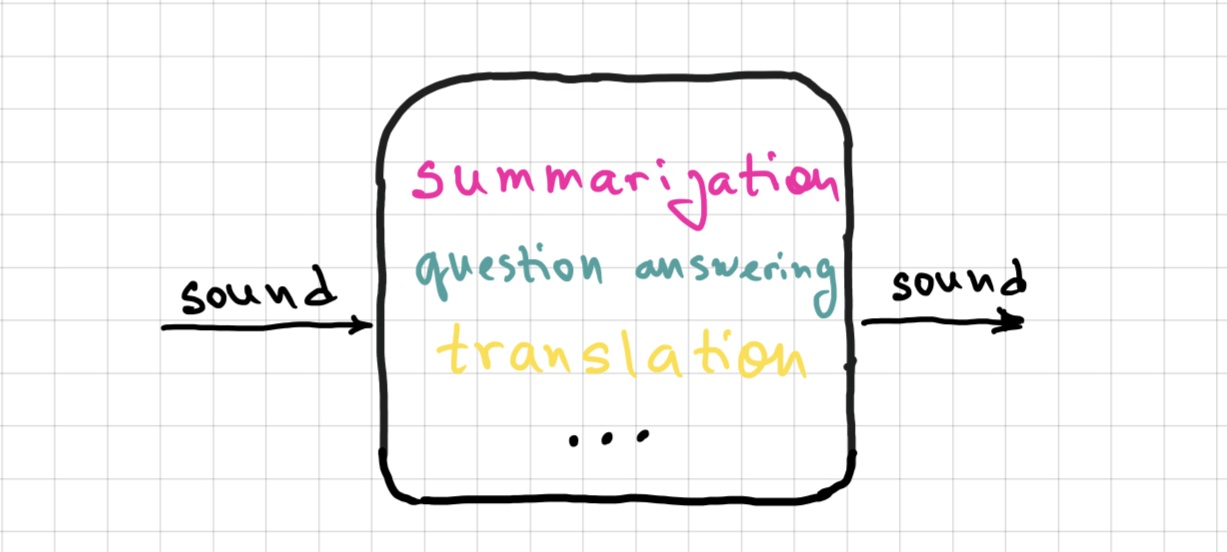 summarization
question answering
translation
...
sound
sound